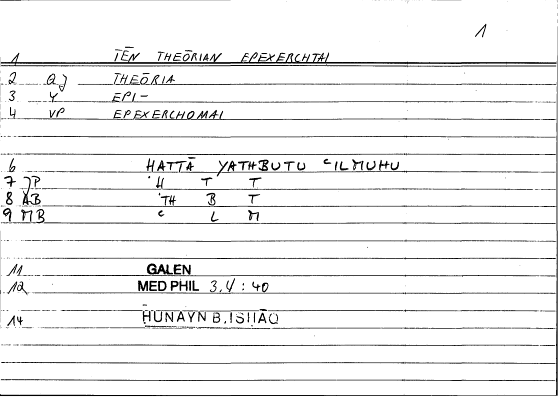 1
1 TĒN THEŌRIAN EPEXERCHTAI
2 aj THEŌRIA
3 Y EPI-
4 VP EPEXERCHOMAI
6 HATTĀ YATHBUTU ʿILMUHU
7 JP 'H T T
8 AB 'TH B T
9 MB ʿ L M
11 GALEN
12 MED PHIL 3,4 : 40
14 HUNAYN B. ISHĀQ